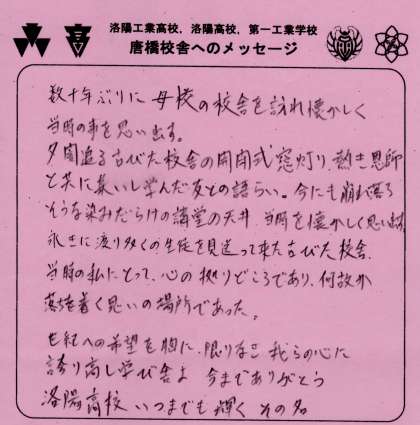 洛陽工業高校，洛陽高校，第一工業学校
唐橋校舎へのメッセージ
高
数十年ぶりに 母校の校舎を訪れ懐かしく
当時の事を思い出す。
夕闇迫る古びた校舎の開閉式窓灯り、熱き恩師
と共に集いし学んだ友との語らい。今にも崩れ落ち
そうな染みだらけの講堂の天井、当時を懐かしく思います。
永きに渡り多くの生徒を見送って来た古びた校舎、
当時の私にとって、心の拠りどころであり、何故か
落ち着く思いの場所であった。
世紀への希望を胸に、限りなき 我らの心に
誇り高し学び舎よ 今までありがとう
洛陽高校 いつまでも 輝く その名